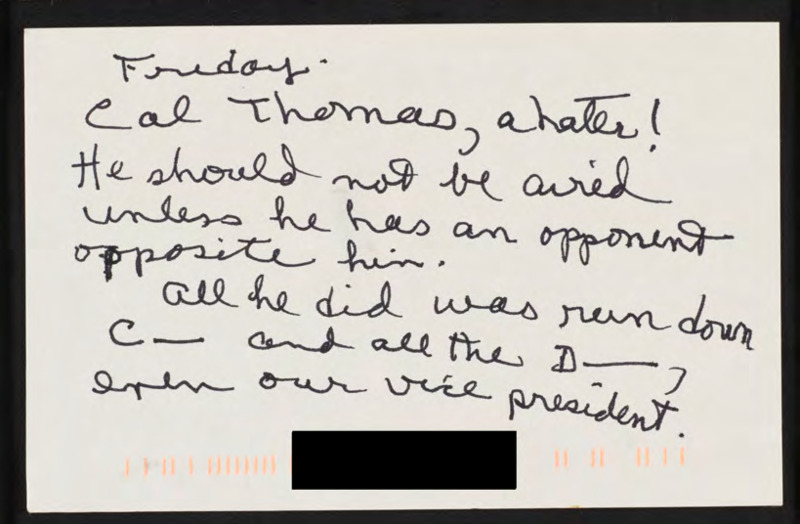 Friday.
Cal Thomas, a hater!
He should not be aired
unless he has an opponent
opposite him.
All he did was run down
C— and all the D—,
even our vice president.